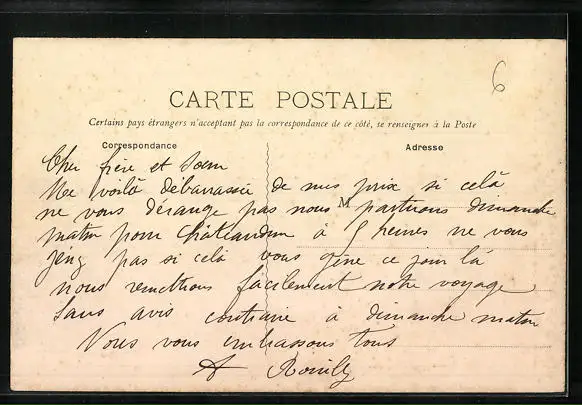 6
CARTE POSTALE
Certains pays étrangers n'acceptant pas la correspondance de ce côté, se renseigner à la Poste
Correspondance
Adresse
Cher frère et Sœur
Me voilà débarrassée de mes prix si celà
ne vous dérange pas nous M partirons dimanche
matin pour Châteaudun à 8 heures ne vous
pas si celà vous gène ce jour là
nous remettrons facilement notre voyage
Sans avis contraire à dimanche matin
Nous vous embrassons tous
A